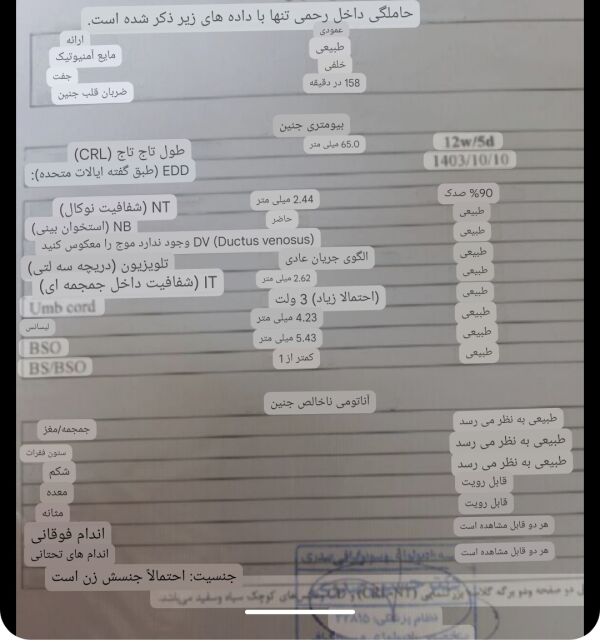 حاملگی داخل رحمی تنها با داده های زیر ذکر شده است.
ارائه عمودی
مایع آمنیوتیک طبیعی
جفت خلفی
ضربان قلب جنین 158 در دقیقه
بیومتری جنین
طول تاج تاج (CRL) 65.0 میلی متر 12w/5d
EDD (طبق گفته ایالات متحده): 1403/10/10
NT (شفافیت نوکال) 2.44 میلی متر 90% صدک
NB (استخوان بینی) حاضر طبیعی
DV (Ductus venosus) وجود ندارد موج را معکوس کنید طبیعی
تلویزیون (دریچه سه لتی) الگوی جریان عادی طبیعی
IT (شفافیت داخل جمجمه ای) 2.62 میلی متر طبیعی
Umb cord (احتمالا زیاد) 3 ولت طبیعی
لیسانس 4.23 میلی متر طبیعی
BSO 5.43 میلی متر طبیعی
BS/BSO کمتر از 1 طبیعی
آناتومی ناخالص جنین
جمجمه/مغز طبیعی به نظر می رسد
ستون فقرات طبیعی به نظر می رسد
شکم طبیعی به نظر می رسد
معده قابل رویت
مثانه قابل رویت
اندام فوقانی هر دو قابل مشاهده است
اندام های تحتانی هر دو قابل مشاهده است
جنسیت: احتمالاً جنسش زن است